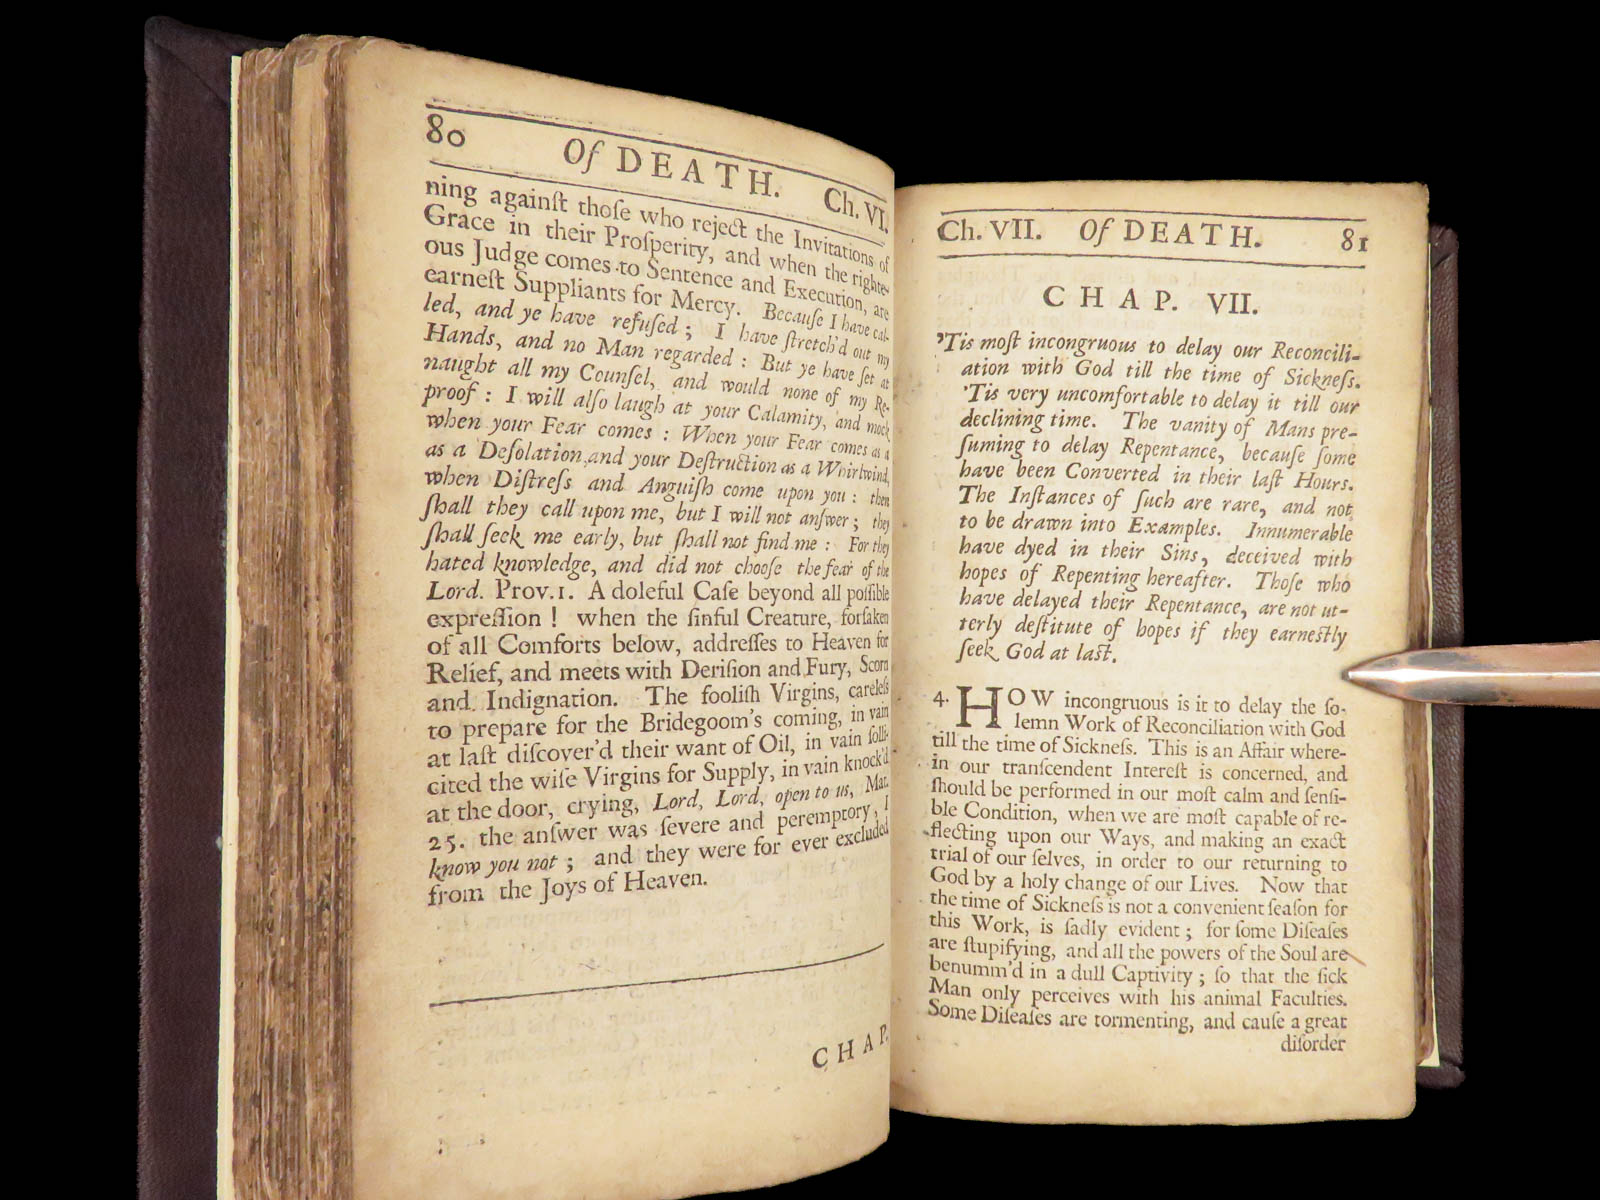 80 Of DEATH. Ch. VI.
ning againſt thoſe who reject the Invitations of
Grace in their Proſperity, and when the righte-
ous Judge comes to Sentence and Execution, are
earneſt Suppliants for Mercy. Becauſe I have cal-
led, and ye have refuſed; I have ſtretch'd out my
Hands, and no Man regarded: But ye have ſet at
naught all my Counſel, and would none of my Re-
proof: I will alſo laugh at your Calamity, and mock
when your Fear comes: When your Fear comes as a
as a Deſolation, and your Deſtruction as a Whirlwind,
when Diſtreſs and Anguiſh come upon you: then
ſhall they call upon me, but I will not anſwer; they
ſhall ſeek me early, but ſhall not find me: For they
hated knowledge, and did not chooſe the fear of the
Lord. Prov. 1. A doleful Caſe beyond all poſſible
expreſſion! when the ſinful Creature, forſaken
of all Comforts below, addreſſes to Heaven for
Relief, and meets with Deriſion and Fury, Scorn
and Indignation. The fooliſh Virgins, careleſs
to prepare for the Bridegoom's coming, in vain
at laſt diſcover'd their want of Oil, in vain ſolli-
cited the wiſe Virgins for Supply, in vain knock'd
at the door, crying, Lord, Lord, open to us, Mat.
25. the anſwer was ſevere and peremptory, I
know you not; and they were for ever excluded
from the Joys of Heaven.
CHAP.
Ch. VII. Of DEATH. 81
CHAP. VII.
'Tis moſt incongruous to delay our Reconcili-
ation with God till the time of Sickneſs.
'Tis very uncomfortable to delay it till our
declining time. The vanity of Mans pre-
ſuming to delay Repentance, becauſe ſome
have been Converted in their laſt Hours.
The Inſtances of ſuch are rare, and not
to be drawn into Examples. Innumerable
have dyed in their Sins, deceived with
hopes of Repenting hereafter. Thoſe who
have delayed their Repentance, are not ut-
terly deſtitute of hopes if they earneſtly
ſeek God at laſt.
4. HOW incongruous is it to delay the ſo-
lemn Work of Reconciliation with God
till the time of Sickneſs. This is an Affair where-
in our tranſcendent Intereſt is concerned, and
ſhould be performed in our moſt calm and ſenſi-
ble Condition, when we are moſt capable of re-
flecting upon our Ways, and making an exact
trial of our ſelves, in order to our returning to
God by a holy change of our Lives. Now that
the time of Sickneſs is not a convenient ſeaſon for
this Work, is ſadly evident; for ſome Diſeaſes
are ſtupifying, and all the powers of the Soul are
benumm'd in a dull Captivity; ſo that the ſick
Man only perceives with his animal Faculties.
Some Diſeaſes are tormenting, and cauſe a great
diſorder